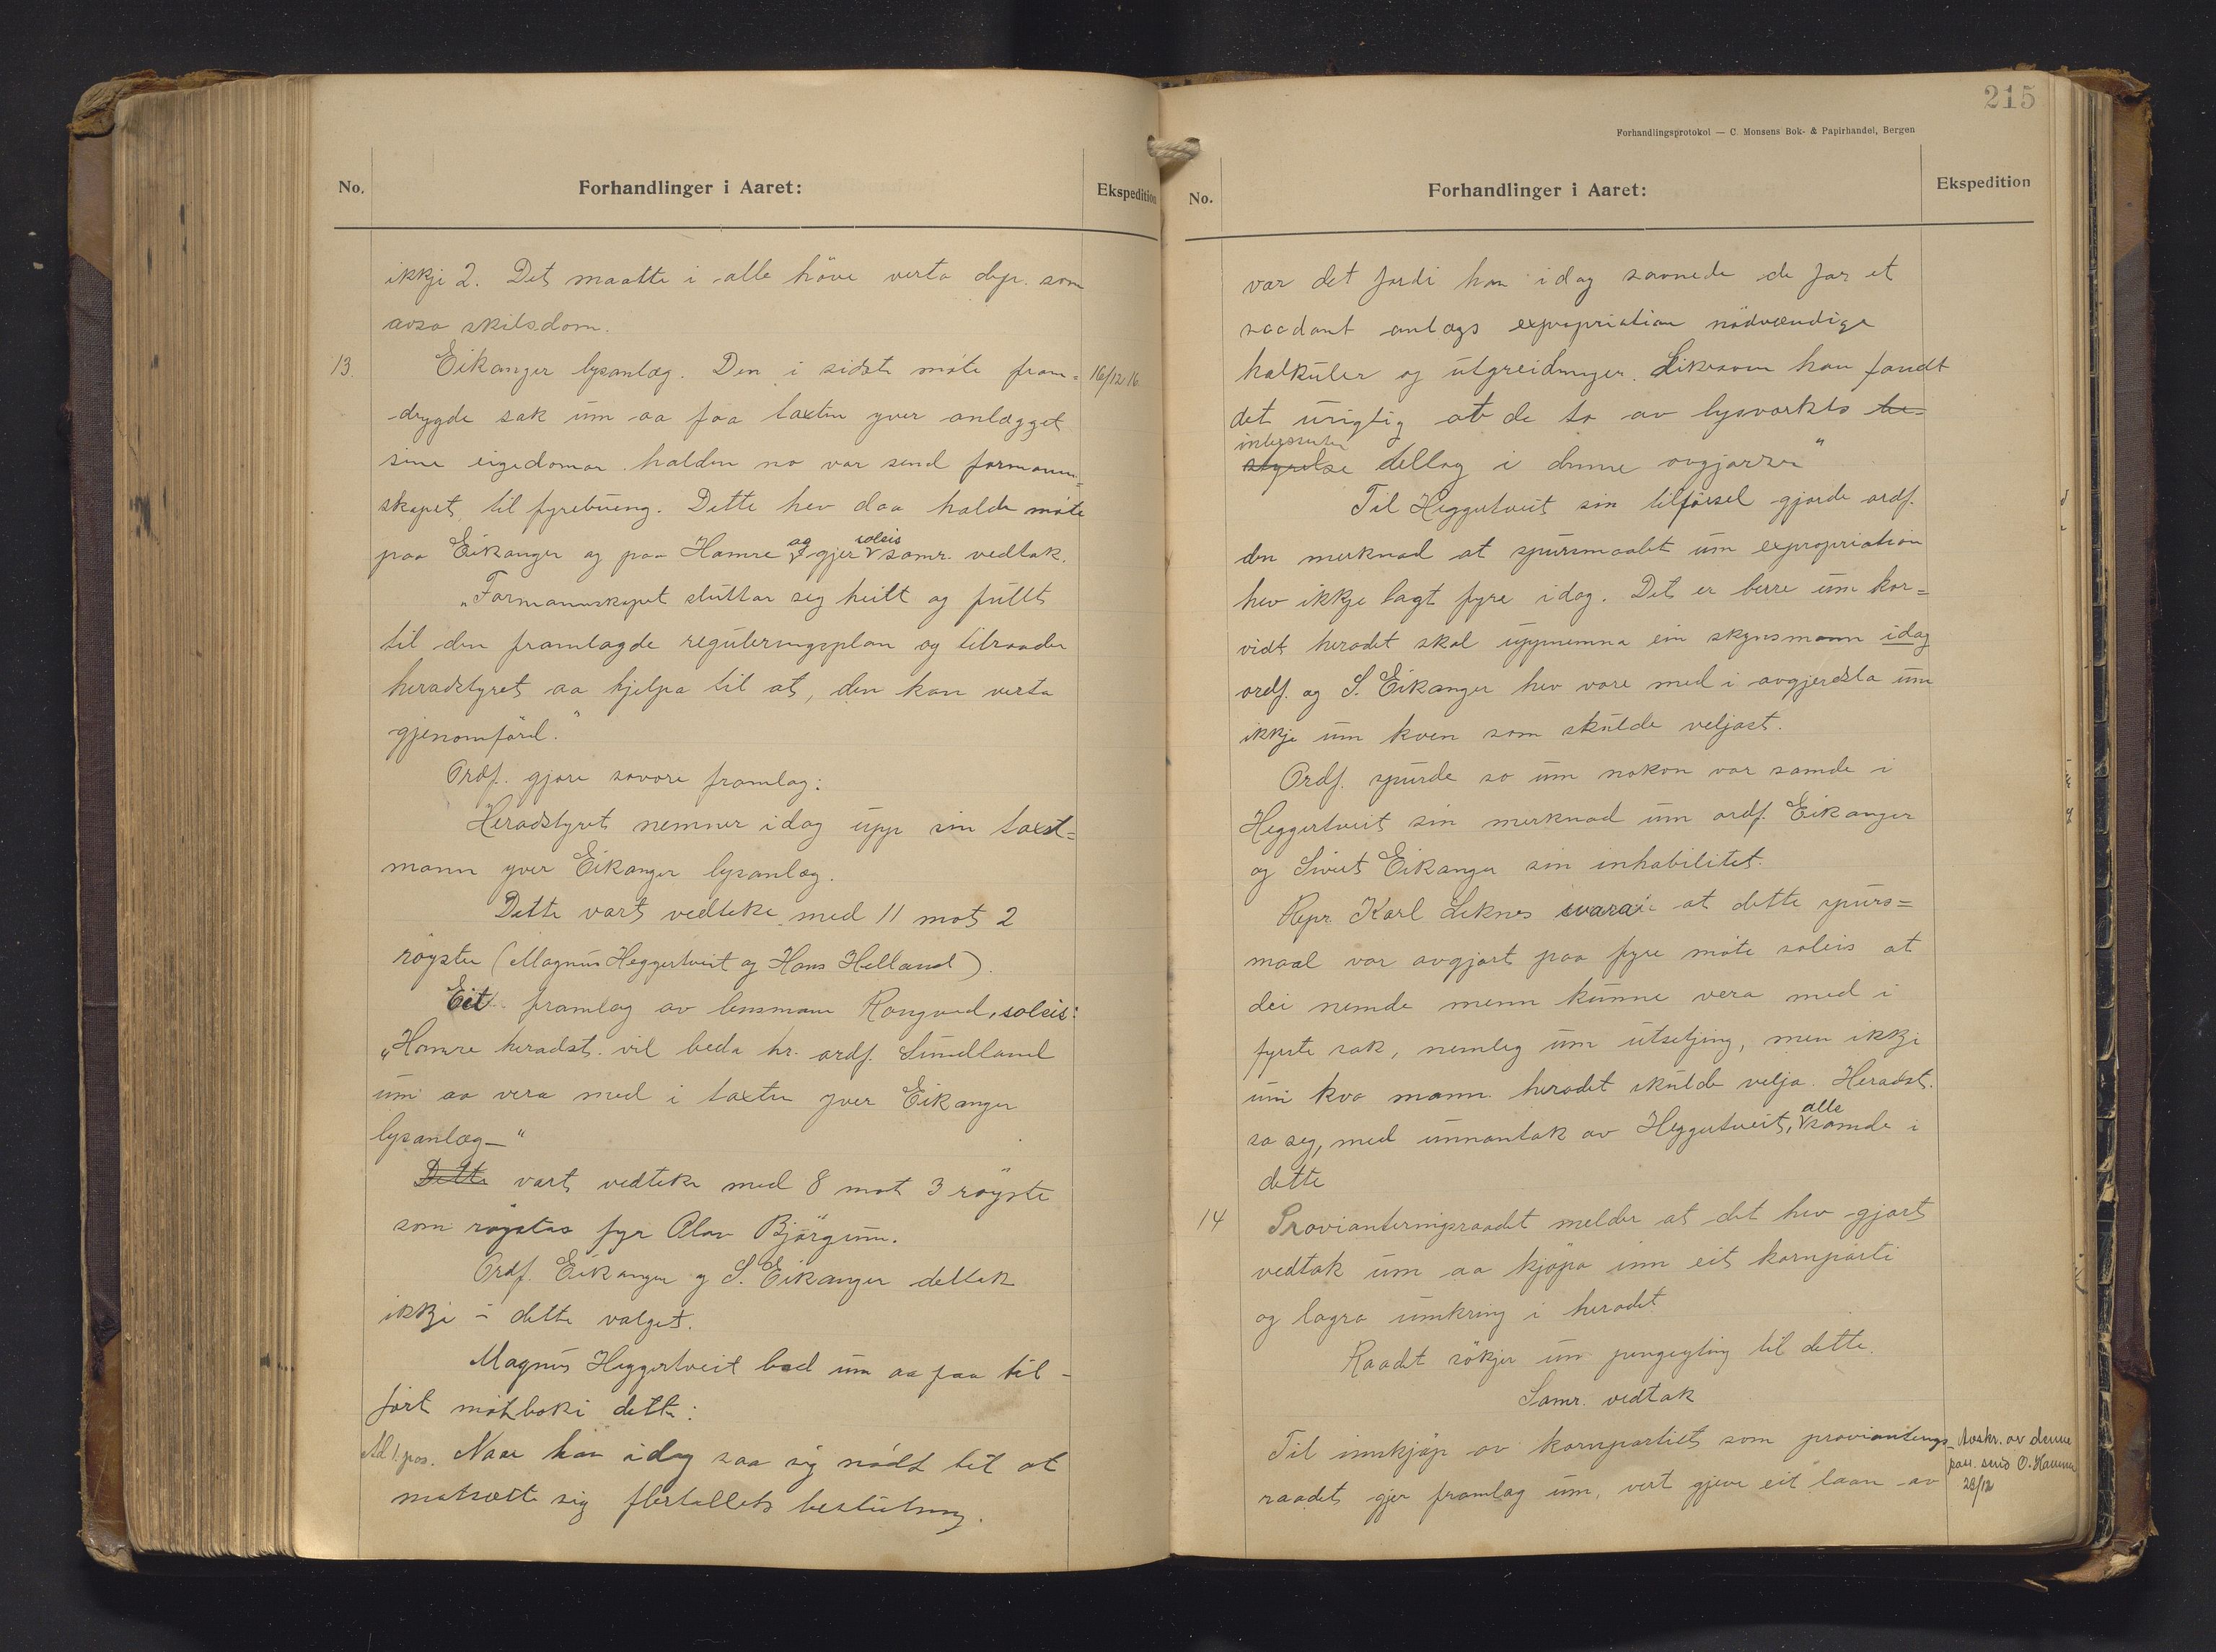 No.
Forhandlinger i Aaret:
Ekspedition
ikkje 2. Det maatte i alle höve verta dep. som
avsa skilsdom.
13. Eikanger lysanlæg. Den i sidste möte fram= 16/12 16
drygde sak um aa faa taxten yver anlægget
sine eigedomar halden no var send formann=
skapet til fyrebuing. Dette hev daa halde möte
paa Eikanger og paa Hamre og gjer soleis samr. vedtak.
„Formannskapet sluttar seg heilt og fullt
til den framlagde reguleringsplan og tilraader
heradstyret aa hjelpa til at, den kan verta
gjenomförd."
Ordf. gjore savore framlag:
Heradstyret nemner idag upp sin taxst=
mann yver Eikanger lysanlæg.
Dette vart vedteke med 11 mot 2
röyster (Magnus Heggertveit og Hans Helland).
Eit framlag av lensmann Rongved, soleis:
„Hamre heradst. vil beda hr. ordf. Sundland
um aa vera med i taxten yver Eikanger
lysanlæg—"
Dette vart vedteke med 8 mot 3 röyste
som röystas fyr Olav Björgum.
Ordf. Eikanger og S. Eikanger deltek
ikkje i dette valget.
Magnus Heggertveit bad um aa faa til-
fört mötboki dette:
Ad 1. pos. Naar han idag saa sig nödt til at
motsætte sig flertallets beslutning.
215
Forhandlingsprotokol — C. Monsens Bok- & Papirhandel, Bergen
No.
Forhandlinger i Aaret:
Ekspedition
var det fordi han idag savnede de for et
saadant anlægs expropriation nödvændige
kalkuler og utgreidninger. Likesom han fandt
det urigtig at de to av lysverkts be=
interessenter
styrelse deltog i denne avgjørelse"
Til Heggertveit sin tilförsel gjorde ordf.
den merknad at spursmaalet um expropriation
hev ikkje lagt fyre idag. Det er berre um kor=
vidt heradet skal uppnemna ein skynsmann idag
ordf. og S. Eikanger hev vore med i avgjerdsla um
ikkje um kven som skulde veljast.
Ordf. spurde so um nokon var samde i
Heggertveit sin merknad um ordf. Eikanger
og Sivert Eikanger sin inhabilitet.
Repr. Karl Leknes svara at dette spurs=
maal var avgjort paa fyre möte soleis at
dei nemde menn kunne vera med i
fyrste sak, nemleg um utsetjing, men ikkje
um kva mann heradet skulde velja. Heradst.
sa seg, med unnantak av Heggertveit, alle samde i
dette
14 Provianteringsraadet melder at det hev gjort
vedtak um aa kjöpa inn eit kornparti
og lagra umkring i heradet
Raadet sökjer um pengeyting til dette.
Samr. vedtak
Til innkjöp av kornpartiet som provianterings-
raadet gjer framlag um, vert gjeve eit laan av
Avskr. av denne
sak send O. Hamre
28/12